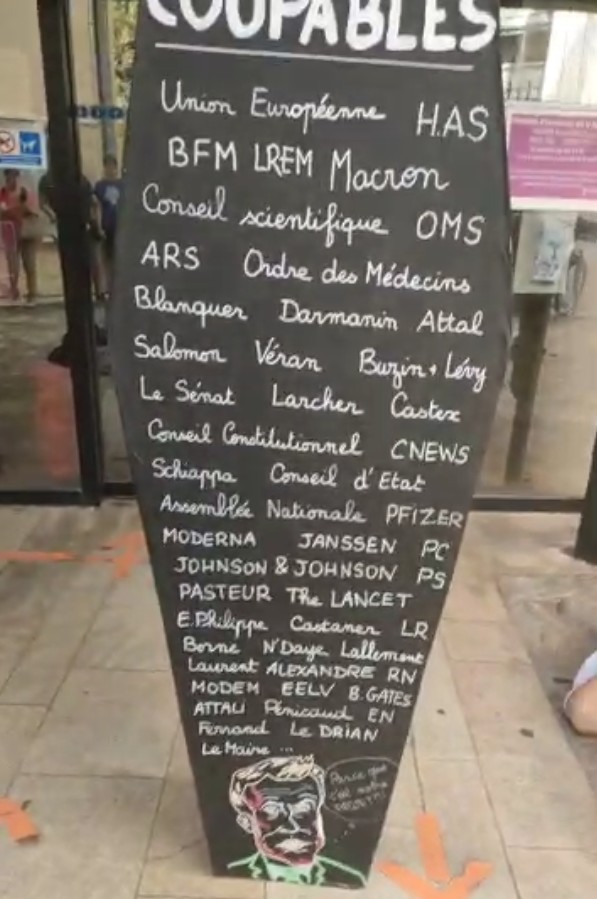 COUPABLES
Union Européenne HAS
BFM LREM Macron
Conseil scientifique OMS
ARS Ordre des Médecins
Blanquer Darmanin Attal
Salomon Véran Buzin + Lévy
Le Sénat Larcher Castex
Conseil Constitutionnel CNEWS
Schiappa Conseil d'Etat
Assemblée Nationale PFIZER
MODERNA JANSSEN PC
JOHNSON & JOHNSON PS
PASTEUR The LANCET
E.Philippe Castaner LR
Borne N'Daye Lallement
Laurent ALEXANDRE RN
MODEM EELV B.GATES
ATTALI Pénicaud EN
Ferrand Le DRIAN
Le Maire ...
Parce que
c'est notre
PROJET!!